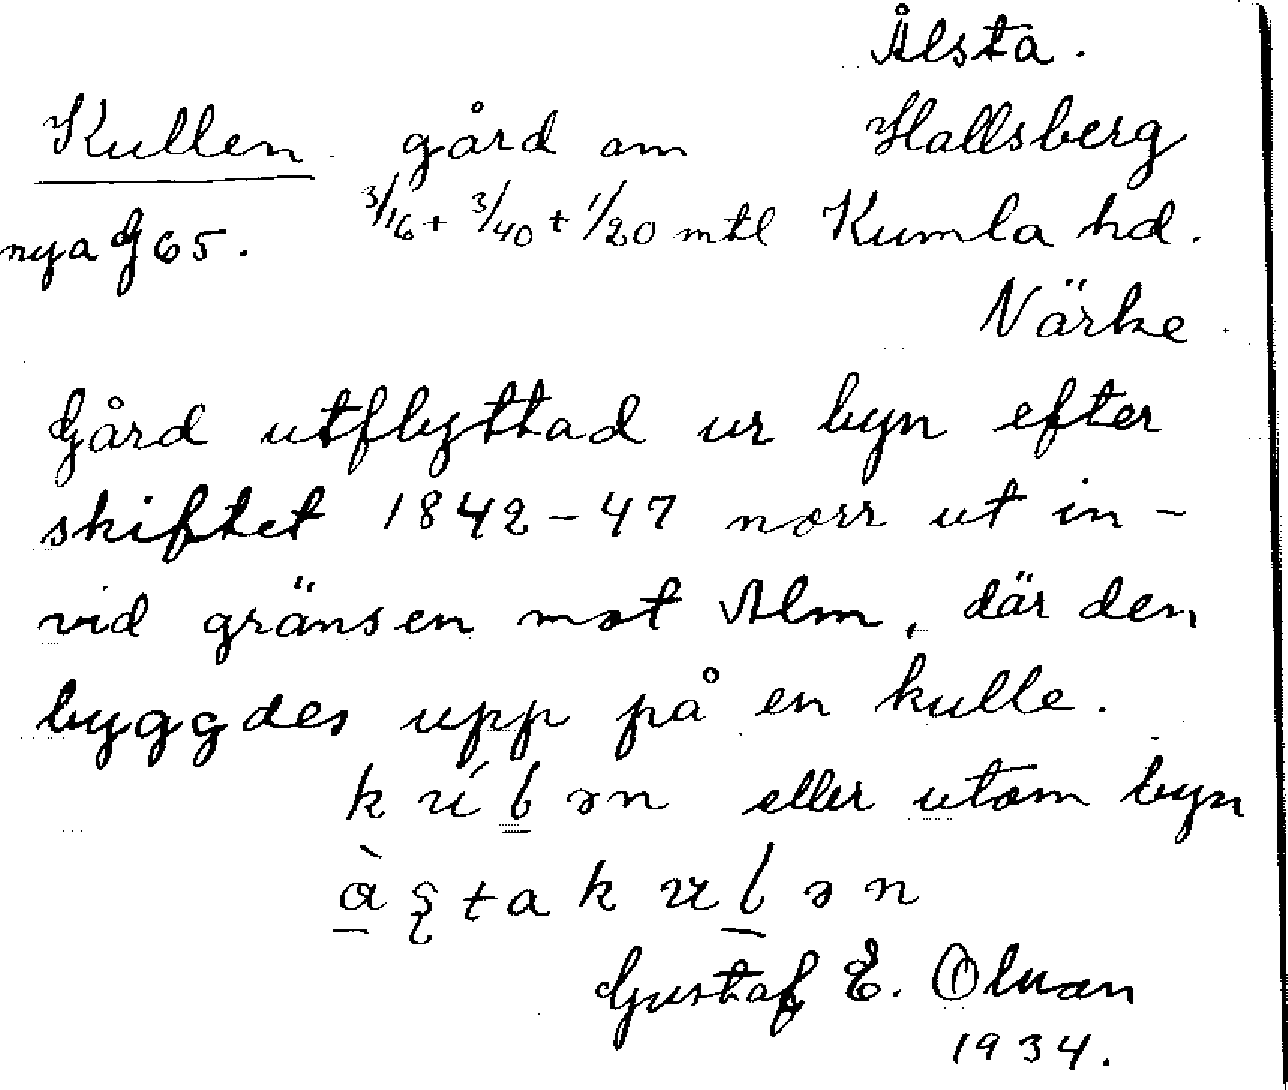 Ålsta.
Kullen gård om Hallsberg
nya G 65. 3/16 + 3/40 + 1/20 mtl Kumla hd.
Närke
Gård utflyttad ur byn efter
skiftet 1842-47 norr ut in-
vid gränsen mot Alm, där den
byggdes upp på en kulle.
eller utom byn
Gustaf E. Olson
1934.